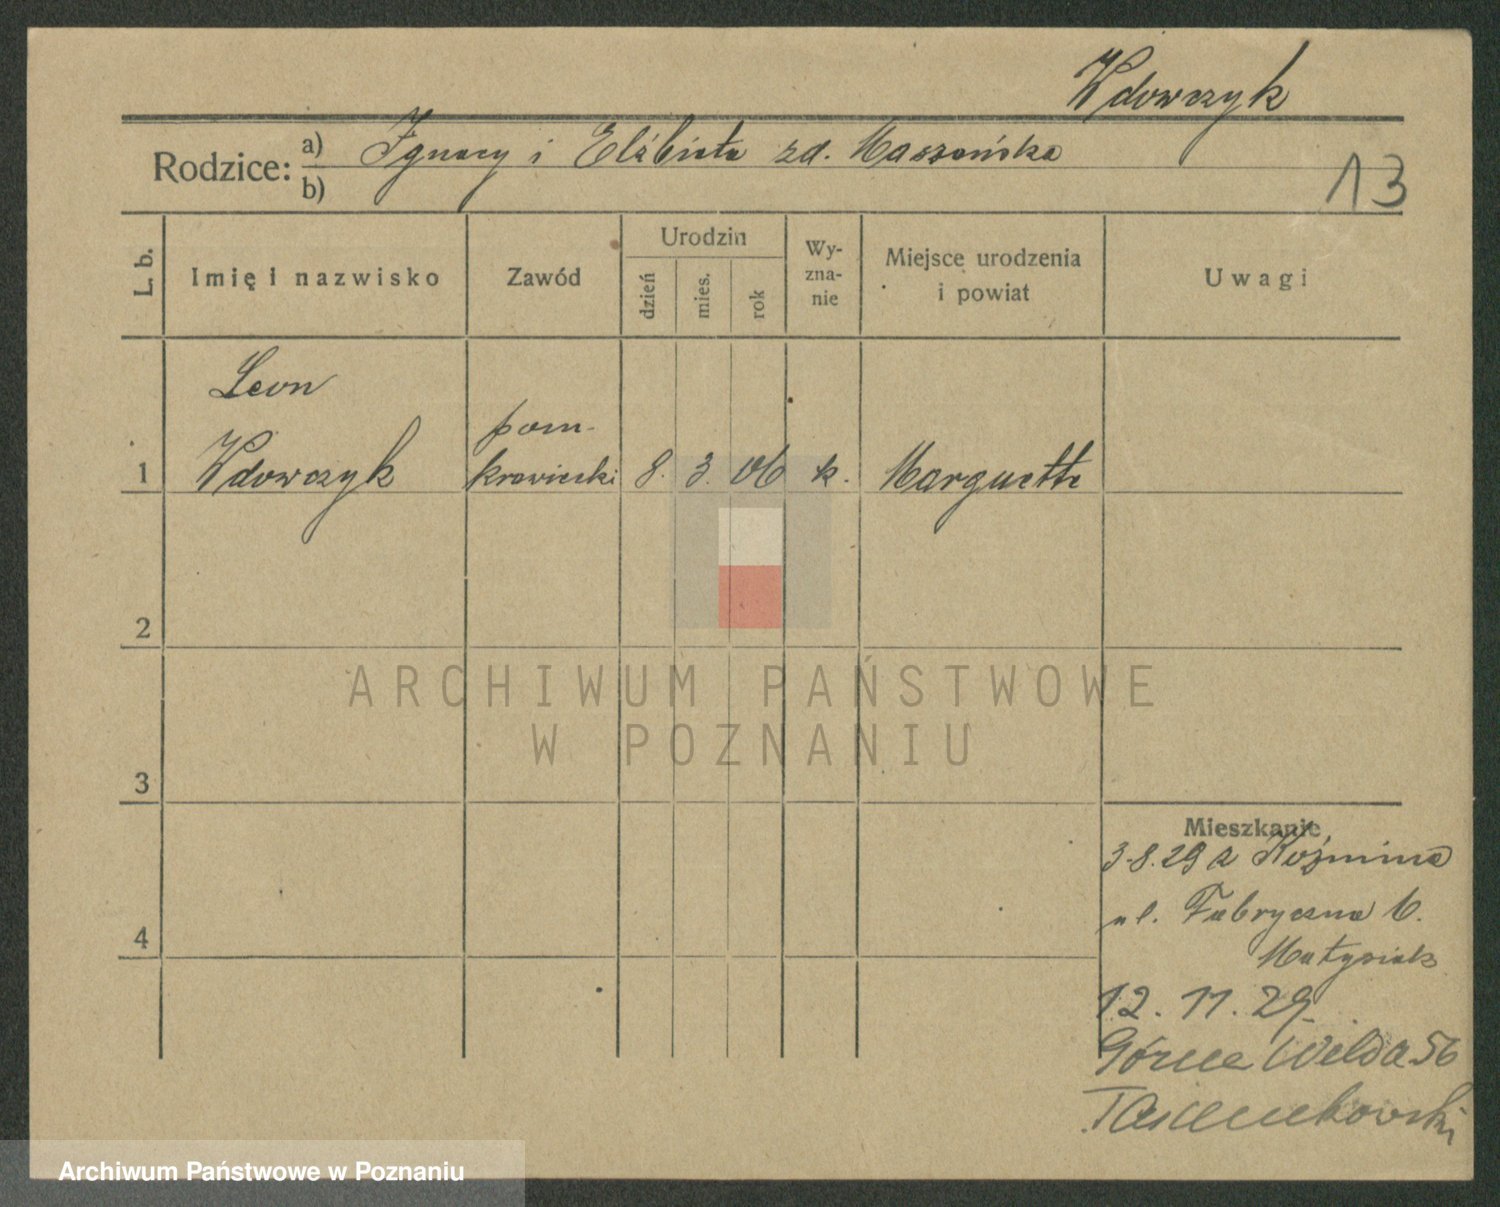 Wdowczyk
Rodzice: a) Ignacy i Elżbieta zd. Maszońska
b)
13
L. b.
Imię i nazwisko
Zawód
Urodzin
dzień
mies.
rok
Wy-
zna-
nie
Miejsce urodzenia
i powiat
Uwagi
Leon
pom-
1 Wdowczyk krawiecki 8. 3. 06 k. Marguette
2
ARCHIWUM PAŃSTWOWE
W POZNANIU
3
Mieszkanie
3.8.29 z Koźmina
ul. Fabryczna 6.
Matysiak
4
12. 11. 29.
Górna Wilda 56
Archiwum Państwowe w Poznaniu